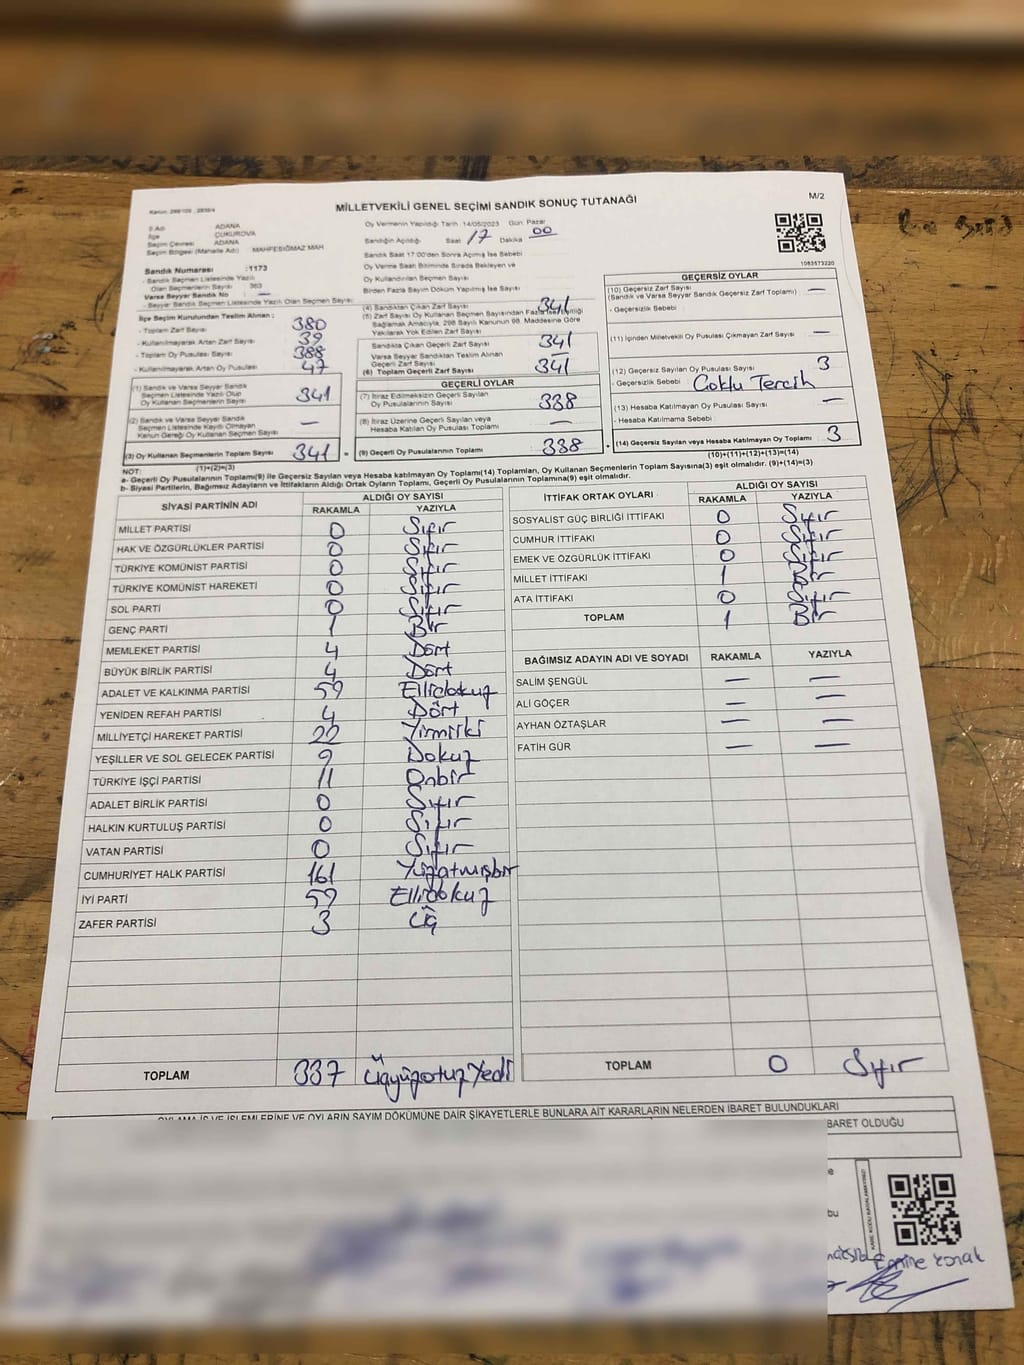 MİLLETVEKİLİ GENEL SEÇİMİ SANDIK SONUÇ TUTANAĞI
M/2
İl Adı ADANA
İlçe ÇUKUROVA
Seçim Çevresi ADANA
Seçim Bölgesi (Mahalle Adı) MAHFESIĞMAZ MAH
Sandık Numarası :1173
- Sandık Seçmen Listesinde Yazılı
Olan Seçmenlerin Sayısı 363
Varsa Seyyar Sandık No : —
- Seyyar Sandık Seçmen Listesinde Yazılı Olan Seçmen Sayısı:
Oy Vermenin Yapıldığı Tarih :14/05/2023 Gün: Pazar
Sandığın Açıldığı Saat 17 Dakika 00
Sandık Saat 17:00'den Sonra Açılmış İse Sebebi
Oy Verme Saati Bitiminde Sırada Bekleyen ve
Oy Kullandırılan Seçmen Sayısı
Birden Fazla Sayım Dökum Yapılmış İse Sayısı
1083573220
İlçe Seçim Kurulundan Teslim Alınan :
- Toplam Zarf Sayısı 380
- Kullanılmayarak Artan Zarf Sayısı 39
- Toplam Oy Pusulası Sayısı 388
- Kullanılmayarak Artan Oy Pusulası 47
(1) Sandık ve Varsa Seyyar Sandık
Seçmen Listesinde Yazılı Olup
Oy Kullanan Seçmenlerin Sayısı 341
(2) Sandık ve Varsa Seyyar Sandık
Seçmen Listesinde Kayıtlı Olmayan
Kanun Gereği Oy Kullanan Seçmen Sayısı —
(3) Oy Kullanan Seçmenlerin Toplam Sayısı 341
(1)+(2)=(3)
(4) Sandıktan Çıkan Zarf Sayısı 341
(5) Zarf Sayısı Oy Kullanan Seçmen Sayısından Fazla İse Eşitliği
Sağlamak Amacıyla, 298 Sayılı Kanunun 98. Maddesine Göre
Yakılarak Yok Edilen Zarf Sayısı
Sandıkta Çıkan Geçerli Zarf Sayısı 341
Varsa Seyyar Sandıktan Teslim Alınan
Geçerli Zarf Sayısı —
(6) Toplam Geçerli Zarf Sayısı 341
GEÇERLİ OYLAR
(7) İtiraz Edilmeksizin Geçerli Sayılan
Oy Pusulalarının Toplamı 338
(8) İtiraz Üzerine Geçerli Sayılan veya
Hesaba Katılan Oy Pusulası Toplamı —
(9) Geçerli Oy Pusulalarının Toplamı 338
GEÇERSİZ OYLAR
(10) Geçersiz Zarf Sayısı —
(Sandık ve Varsa Seyyar Sandık Geçersiz Zarf Toplamı)
- Geçersizlik Sebebi
(11) İçinden Milletvekili Oy Pusulası Çıkmayan Zarf Sayısı —
(12) Geçersiz Sayılan Oy Pusulası Sayısı 3
- Geçersizlik Sebebi Çoklu Tercih
(13) Hesaba Katılmayan Oy Pusulası Sayısı —
- Hesaba Katılmama Sebebi
(14) Geçersiz Sayılan veya Hesaba Katılmayan Oy Toplamı 3
(10)+(11)+(12)+(13)=(14)
NOT:
a- Geçerli Oy Pusulalarının Toplamı(9) ile Geçersiz Sayılan veya Hesaba katılmayan Oy Toplamı(14) Toplamları, Oy Kullanan Seçmenlerin Toplam Sayısına(3) eşit olmalıdır. (9)+(14)=(3)
b- Siyasi Partilerin, Bağımsız Adayların ve İttifakların Aldığı Ortak Oyların Toplamı, Geçerli Oy Pusulalarının Toplamına(9) eşit olmalıdır.
SİYASİ PARTİNİN ADI ALDIĞI OY SAYISI
RAKAMLA YAZIYLA
MİLLET PARTİSİ 0 Sıfır
HAK VE ÖZGÜRLÜKLER PARTİSİ 0 Sıfır
TÜRKİYE KOMÜNİST PARTİSİ 0 Sıfır
TÜRKİYE KOMÜNİST HAREKETİ 0 Sıfır
SOL PARTİ 0 Sıfır
GENÇ PARTİ 1 Bir
MEMLEKET PARTİSİ 4 Dört
BÜYÜK BİRLİK PARTİSİ 4 Dört
ADALET VE KALKINMA PARTİSİ 59 Ellidokuz
YENİDEN REFAH PARTİSİ 4 Dört
MİLLİYETÇİ HAREKET PARTİSİ 22 Yirmiiki
YEŞİLLER VE SOL GELECEK PARTİSİ 9 Dokuz
TÜRKİYE İŞÇİ PARTİSİ 11 Onbir
ADALET BİRLİK PARTİSİ 0 Sıfır
HALKIN KURTULUŞ PARTİSİ 0 Sıfır
VATAN PARTİSİ 0 Sıfır
CUMHURİYET HALK PARTİSİ 161 Yüzatmışbir
İYİ PARTİ 59 Ellidokuz
ZAFER PARTİSİ 3 Üç
TOPLAM 337 Üçyüzotuz Yedi
İTTİFAK ORTAK OYLARI ALDIĞI OY SAYISI
RAKAMLA YAZIYLA
SOSYALİST GÜÇ BİRLİĞİ İTTİFAKI 0 Sıfır
CUMHUR İTTİFAKI 0 Sıfır
EMEK VE ÖZGÜRLÜK İTTİFAKI 0 Sıfır
MİLLET İTTİFAKI 1 Bir
ATA İTTİFAKI 0 Sıfır
TOPLAM 1 Bir
BAĞIMSIZ ADAYIN ADI VE SOYADI RAKAMLA YAZIYLA
SALİM ŞENGÜL — —
ALİ GÖÇER — —
AYHAN ÖZTAŞLAR — —
FATİH GÜR — —
TOPLAM 0 Sıfır
OYLAMA İŞ VE İŞLEMLERİNE VE OYLARIN SAYIM DÖKÜMÜNE DAİR ŞİKAYETLERLE BUNLARA AİT KARARLARIN NELERDEN İBARET BULUNDUKLARI
BARET OLDUĞU
Emine Konak